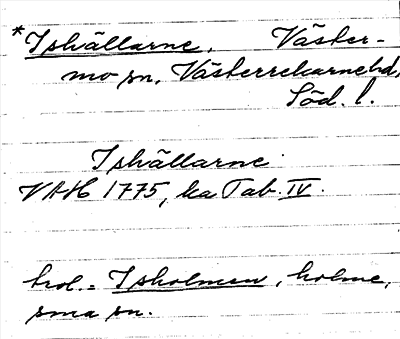 *Ishällarne, Väster-
mo sn, Västerrekarnehd,
Söd. l.
Ishällarne
VAH 1775, ka Tab. IV.
trol. = Isholmen, holme,
sma sn.